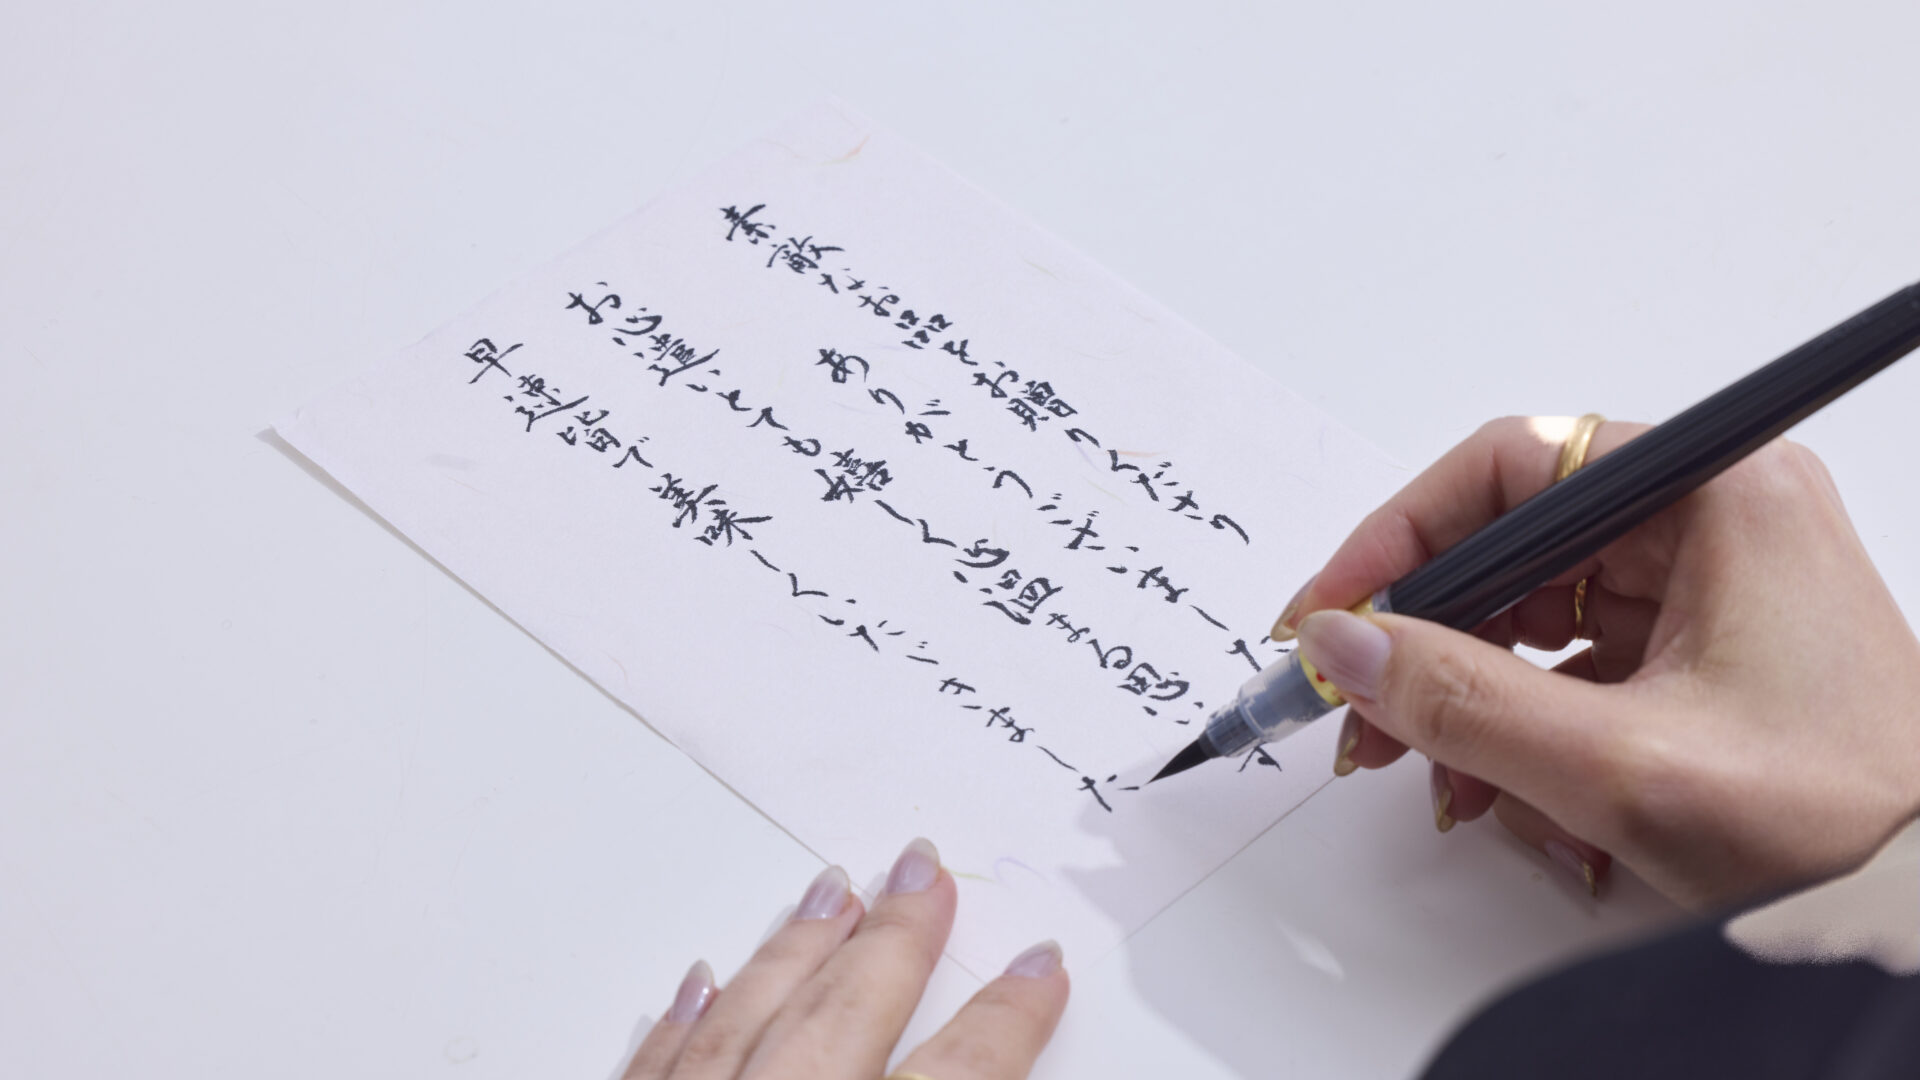 素敵なお品をお贈りくださり
ありがとうございました
お心遣いとても嬉しく心温まる思い
早速皆で美味しくいただきました